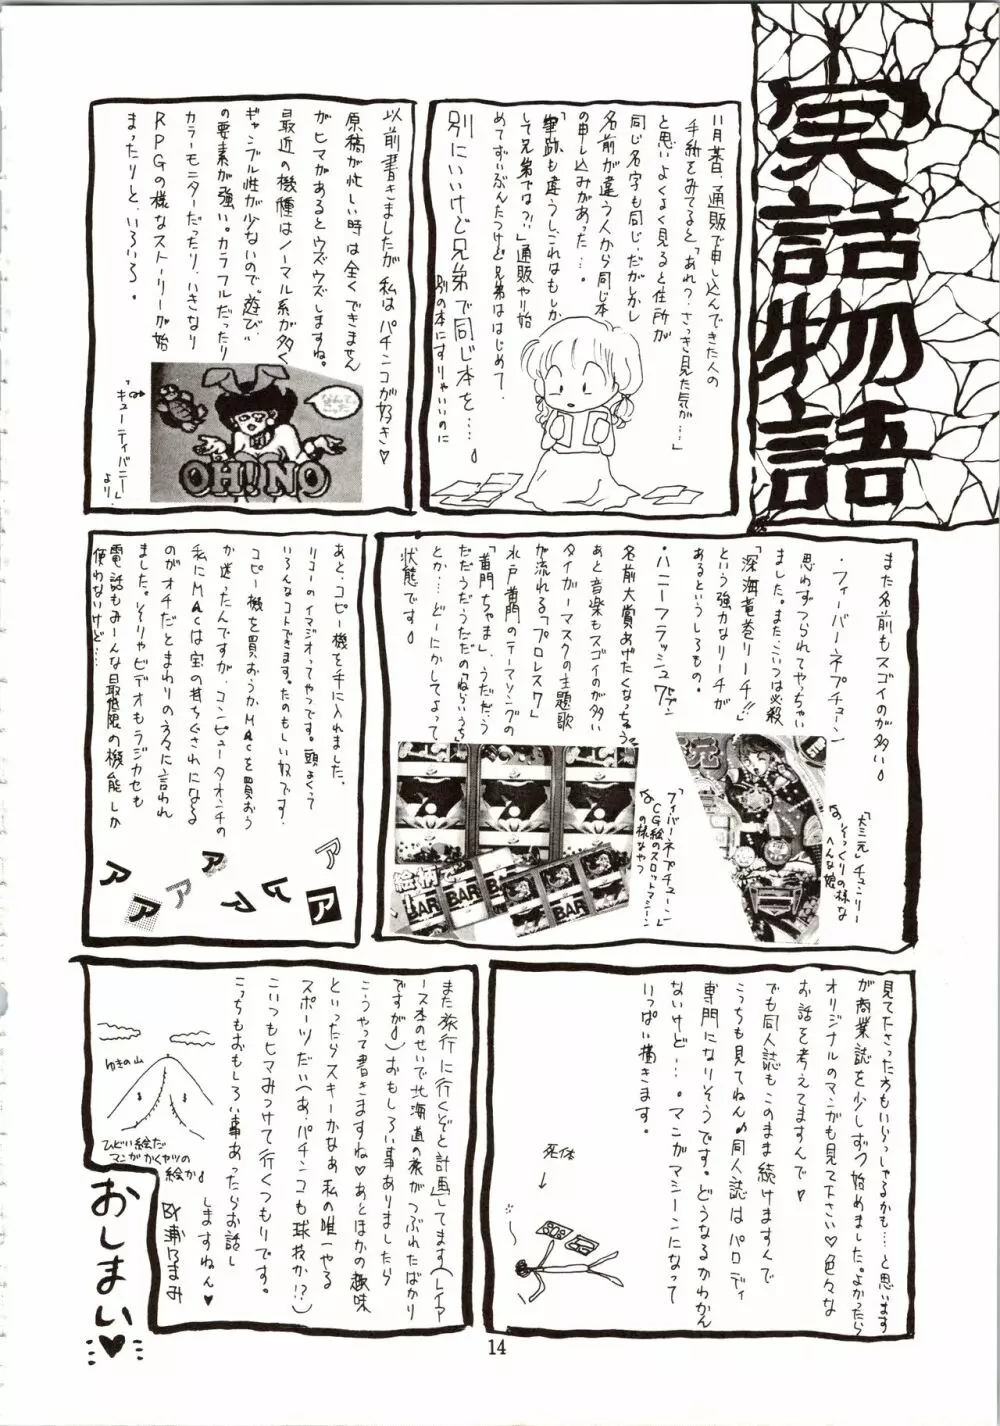 実話物語
11月某日、通販で申し込んできた人の
手紙をみてると「あれ?さっき見た気が…」
と思いよくよく見ると住所が
同じ名字も同じ、だがしかし
名前が違う人から同じ本
の申し込みがあった…。
「筆跡も違うしこれはもしか
して兄弟では?!」通販やり始
めてずいぶんたつけど兄弟ははじめて、
別にいいけど兄弟で同じ本を…。
別の本にすりゃいいのに
以前書きましたが私はパチンコが好き♡
原稿が忙しい時は全くできません
がヒマがあるとウズウズしますね。
最近の機種はノーマル系が多く
ギャンブル性が少ないので。遊び
の要素が強い。カラフルだったり
カラーモニターだったり、いきなり
RPGの様なストーリーが始
まったりと、いろいろ。
OH!NO
「キューティバニー」
より
また名前もスゴイのが多い。
・フィーバーネプチューン
思わずつられてやっちゃい
ました。また、こいつは必殺
「深海竜巻リーチ!!」
という強力なリーチが
あるというしろもの。
・ハニーフラッシュ7
名前大賞あげたくなっちゃう。
あと音楽もスゴイのが多い
タイガーマスクの主題歌
が流れる「プロレス7」
水戸黄門のテーマソングの
「黄門ちゃま」、うだだうう
だだうだうだだの「ねらいうち」
とか…どーにかしてよって
状態です。
「大三元」チューリー
そっくりの様な
へんな娘
「フィーバーネプチューン」
CG絵のスロットマシーン
の様なやつ
絵柄
BAR
BAR
BAR
あと、コピー機を手に入れました、
リコーのイマジオってやつです。頭よくって
いろんなコトできます。たのもしい奴です。
コピー機を買おうかMACを買おう
か迷ったんですが、コンピュータオンチの
私にMACは宝の持ちぐされになる
のがオチだとまわりの方々に言われ
ました。そりゃビデオもラジカセも
電話もみーんな最低限の機能しか
使わないけど…
ア
ア
ア
ア
ア
ア
ア
ア
見て下さった方もいらっしゃるかも…と思います
が商業誌を少しずつ始めました。よかったら
オリジナルのマンガも見て下さい♡色々な
お話を考えてますんで♡
でも同人誌もこのまま続けますんで
こっちも見てねん♪同人誌はパロディ
専門になりそうです。どうなるかわかん
ないけど…。マンガマシーンになって
いっぱい描きます。
死体
また旅行に行くぞと計画してます(レイア
ース本のせいで北海道の旅がつぶれたばかり
ですが)おもしろい事ありましたら
こうやって書きますね♡あとほかの趣味
といったらスキーかなぁ私の唯一やる
スポーツだい(あ、パチンコも球技か!?)
こいつもヒマみつけて行くつもりです。
こっちもおもしろい事あったらお話し
しますねん♥
BY
ゆきの山
ひどい絵だ
マンガかくヤツの
絵か。
おしまい♥
14